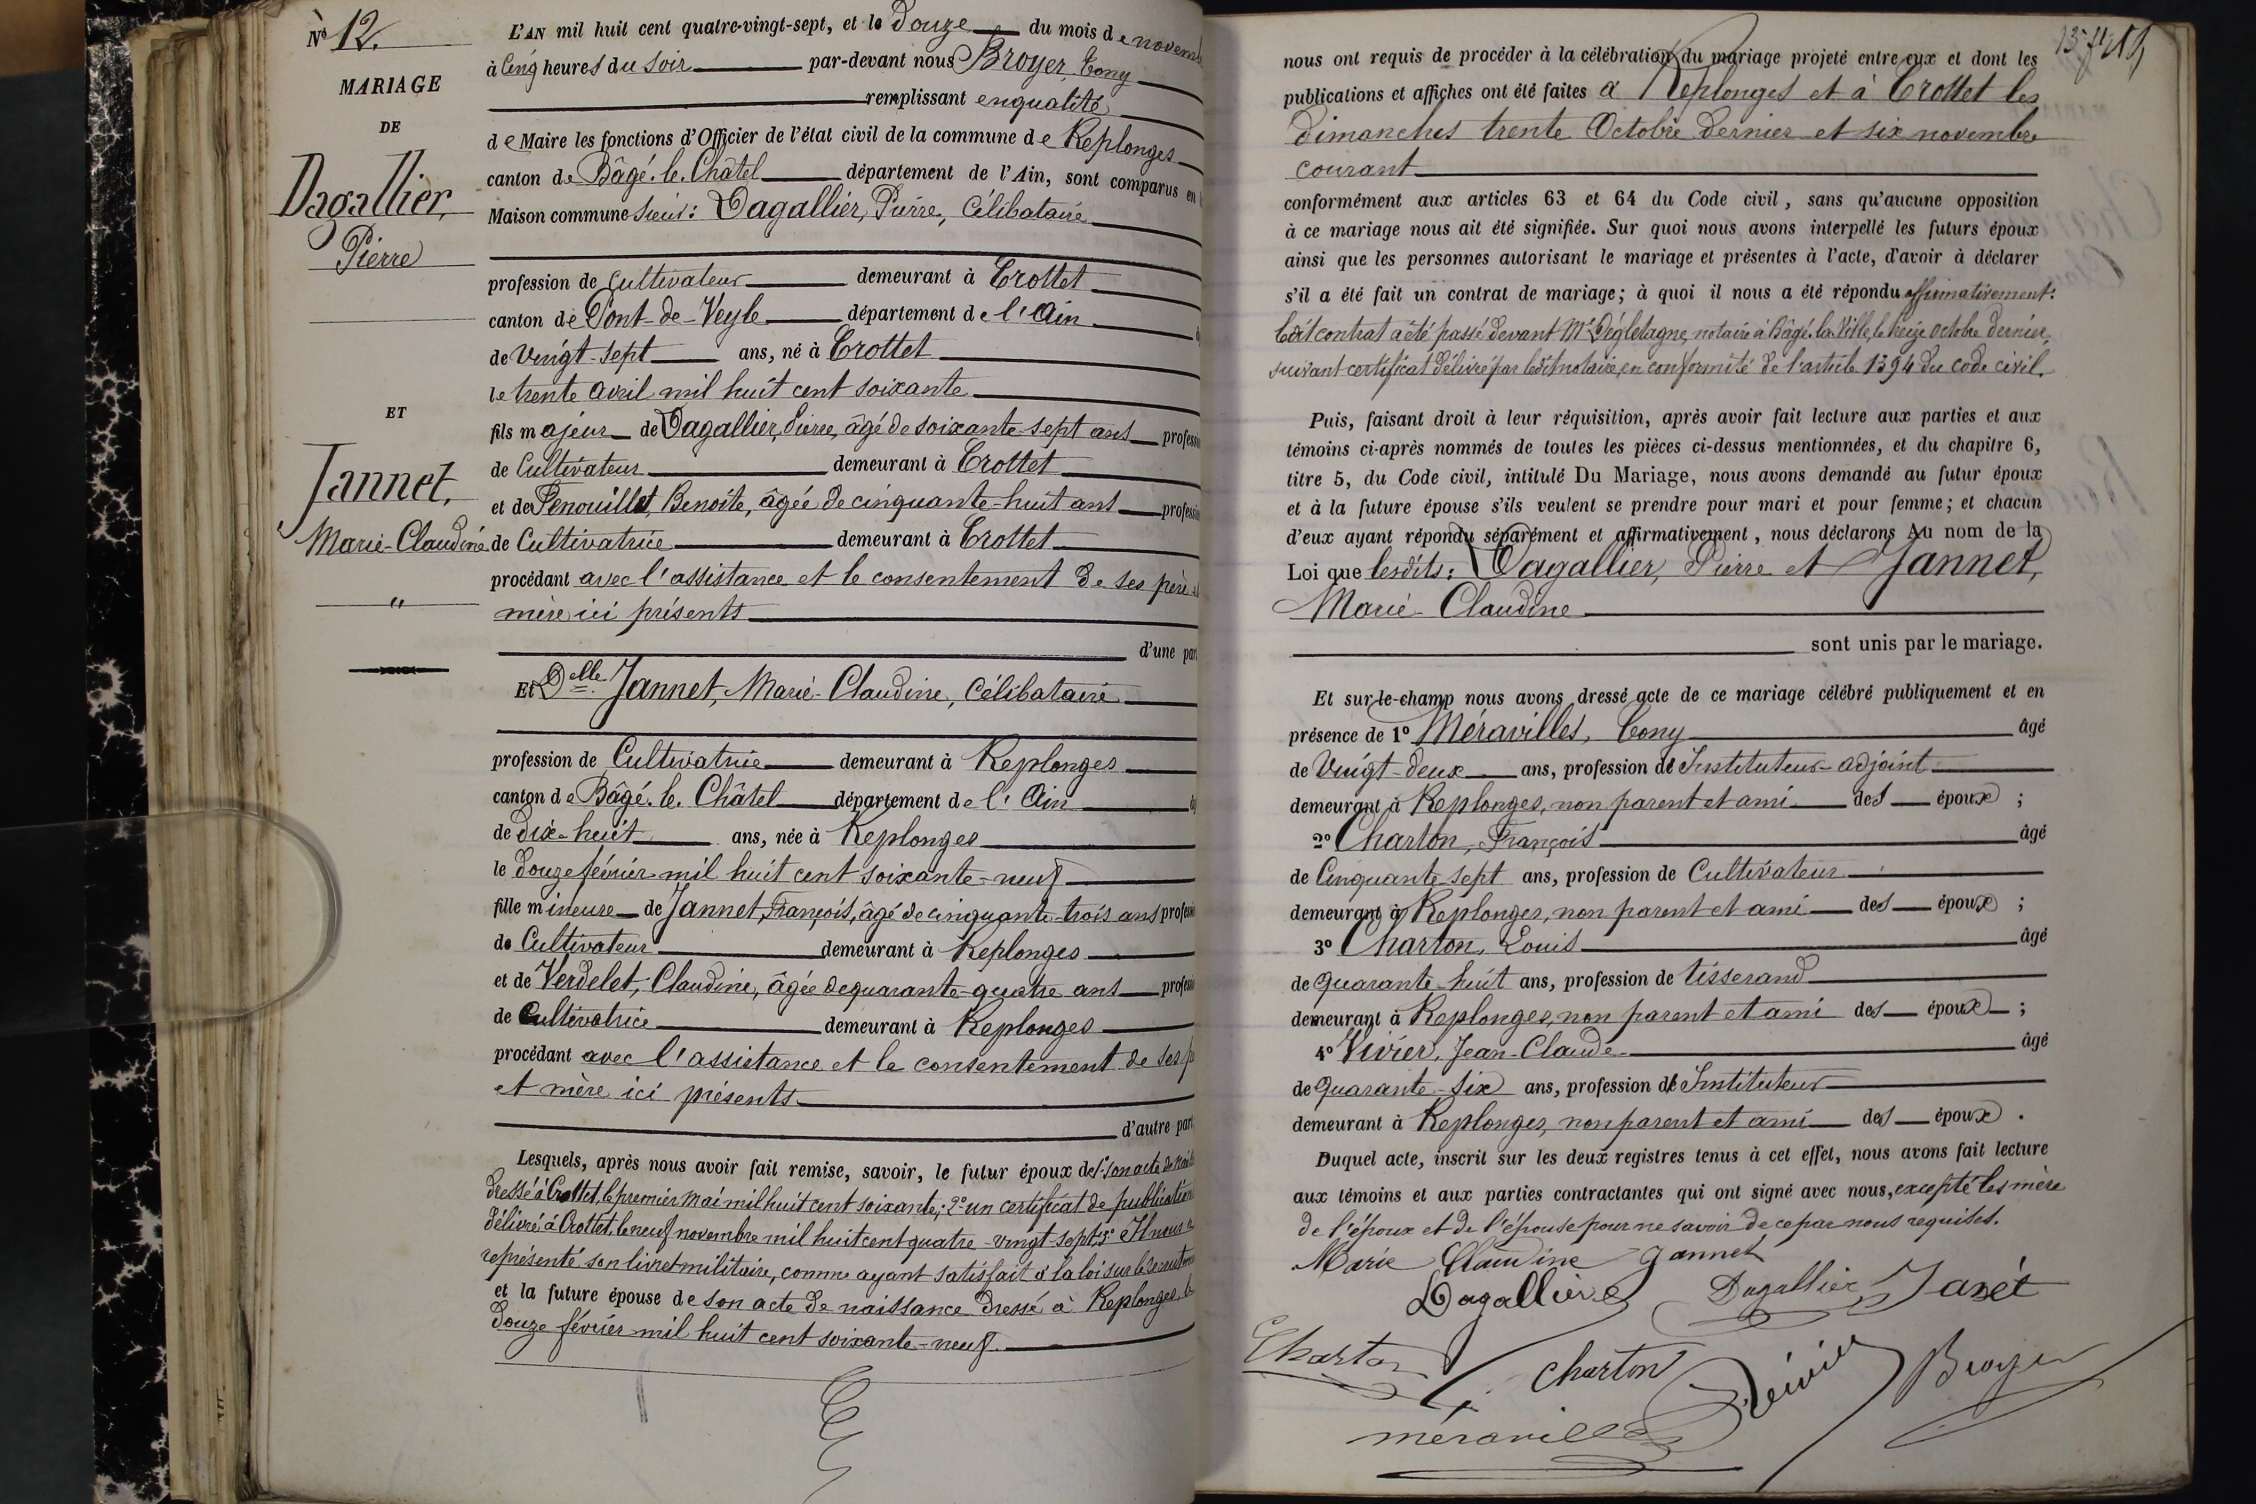 N° 12.
MARIAGE
DE
Dagallier,
Pierre
ET
Jannet,
Marie-Claudine
"
L'AN mil huit cent quatre-vingt-sept, et le Douze du mois de novem
à Cinq heures du soir par-devant nous Broyer, Tony
remplissant en qualité
de Maire les fonctions d'Officier de l'état civil de la commune de Replonges
canton de Bâgé-le-Châtel département de l'Ain, sont comparus en
Maison commune sieur : Dagallier, Pierre, Célibataire
profession de Cultivateur demeurant à Crottet
canton de Pont-de-Veyle département de l'Ain
de vingt-sept ans, né à Crottet
le trente avril mil huit cent soixante
fils majeur de Dagallier, Pierre, âgé de soixante-sept ans profess
de Cultivateur demeurant à Crottet
et de Penouillet, Benoîte, âgée de cinquante-huit ans profess
de Cultivatrice demeurant à Crottet
procédant avec l'assistance et le consentement de ses père
mère ici présents
d'une par
Et Delle Jannet, Marie-Claudine, Célibataire
profession de Cultivatrice demeurant à Replonges
canton de Bâgé-le-Châtel département de l'Ain
de Dix-huit ans, née à Replonges
le douze février mil huit cent soixante-neuf
fille mineure de Jannet, François, âgé de cinquante-trois ans profess
de Cultivateur demeurant à Replonges
et de Verdelet, Claudine, âgée de quarante-quatre ans profess
de Cultivatrice demeurant à Replonges
procédant avec l'assistance et le consentement de ses p
et mère ici présents
d'autre part
Lesquels, après nous avoir fait remise, savoir, le futur époux de 1° son acte de nais
dressé à Crottet, le premier mai mil huit cent soixante; 2° un certificat de publication
délivré à Crottet, le neuf novembre mil huit cent quatre-vingt-sept; 3° Il nous a
représenté son livret militaire, comme ayant satisfait à la loi sur le recrutem
et la future épouse de son acte de naissance dressé à Replonges, le
douze février mil huit cent soixante-neuf.
nous ont requis de procéder à la célébration du mariage projeté entre eux et dont les
publications et affiches ont été faites à Replonges et à Crottet les
dimanches trente Octobre dernier et six novembre
courant
conformément aux articles 63 et 64 du Code civil, sans qu'aucune opposition
à ce mariage nous ait été signifiée. Sur quoi nous avons interpellé les futurs époux
ainsi que les personnes autorisant le mariage et présentes à l'acte, d'avoir à déclarer
s'il a été fait un contrat de mariage; à quoi il nous a été répondu affirmativement:
Ledit contrat a été passé devant Me Dégletagne, notaire à Bâgé-la-Ville, le treize octobre dernier,
suivant certificat délivré par ledit notaire, en conformité de l'article 1394 du code civil.
Puis, faisant droit à leur réquisition, après avoir fait lecture aux parties et aux
témoins ci-après nommés de toutes les pièces ci-dessus mentionnées, et du chapitre 6,
titre 5, du Code civil, intitulé Du Mariage, nous avons demandé au futur époux
et à la future épouse s'ils veulent se prendre pour mari et pour femme; et chacun
d'eux ayant répondu séparément et affirmativement, nous déclarons Au nom de la
Loi que lesdits : Dagallier, Pierre et Jannet,
Marie-Claudine
sont unis par le mariage.
Et sur-le-champ nous avons dressé acte de ce mariage célébré publiquement et en
présence de 1° Méravilles, Tony âgé
de Vingt-deux ans, profession d'Instituteur-adjoint
demeurant à Replonges, non parent et ami des époux ;
2° Charton, François âgé
de Cinquante-sept ans, profession de Cultivateur
demeurant à Replonges, non parent et ami des époux ;
3° Charton, Louis âgé
de quarante-huit ans, profession de tisserand
demeurant à Replonges, non parent et ami des époux ;
4° Vivier, Jean-Claude âgé
de quarante-six ans, profession d'Instituteur
demeurant à Replonges, non parent et ami des époux .
Duquel acte, inscrit sur les deux registres tenus à cet effet, nous avons fait lecture
aux témoins et aux parties contractantes qui ont signé avec nous, excepté les mère
de l'époux et de l'épouse pour ne savoir de ce par nous requises.
Marie Claudine Jannet
Dagallier Dagallier Janét
Charton charton Vivier Broyer
méravilles